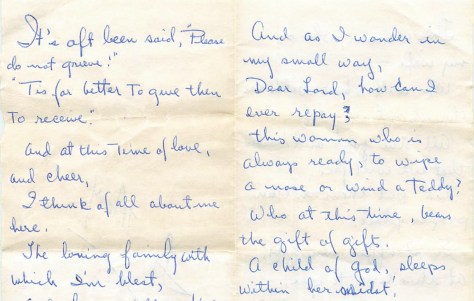 It's oft been said, "Please
do not grieve!"
"Tis far better To give then
To receive".
And at this Time of love,
and cheer,
I think of all about me
here.
The loving family with
which I'm blest,
And as I wonder in
my small way,
Dear Lord, how can I
ever repay?
this woman who is
always ready, to wipe
a nose or wind a Teddy?
Who at this time, bears
the gift of gifts.
A child of God, sleeps
within her midst,